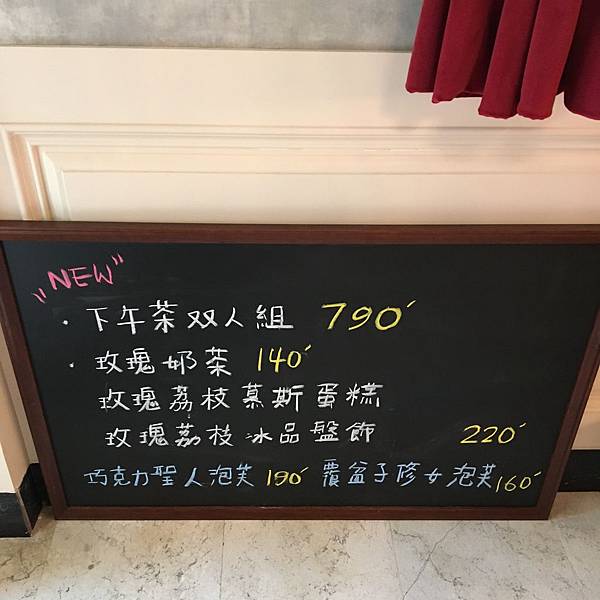 "NEW"
· 下午茶双人組 790
· 玫瑰奶茶 140
玫瑰荔枝慕斯蛋糕
玫瑰荔枝冰品盤飾 220
巧克力聖人泡芙 190 覆盆子修女泡芙 160